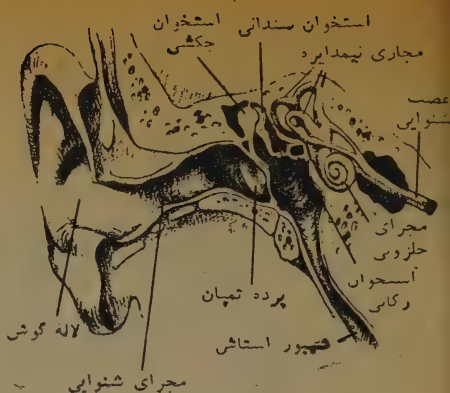 استخوان سندانی
استخوان
چکشی
مجاری نیمدایره
عصب
شنوایی
مجرای
حلزونی
استخوان
رکابی
پرده تمپان
شیپور استاش
لاله گوش
مجرای شنوایی